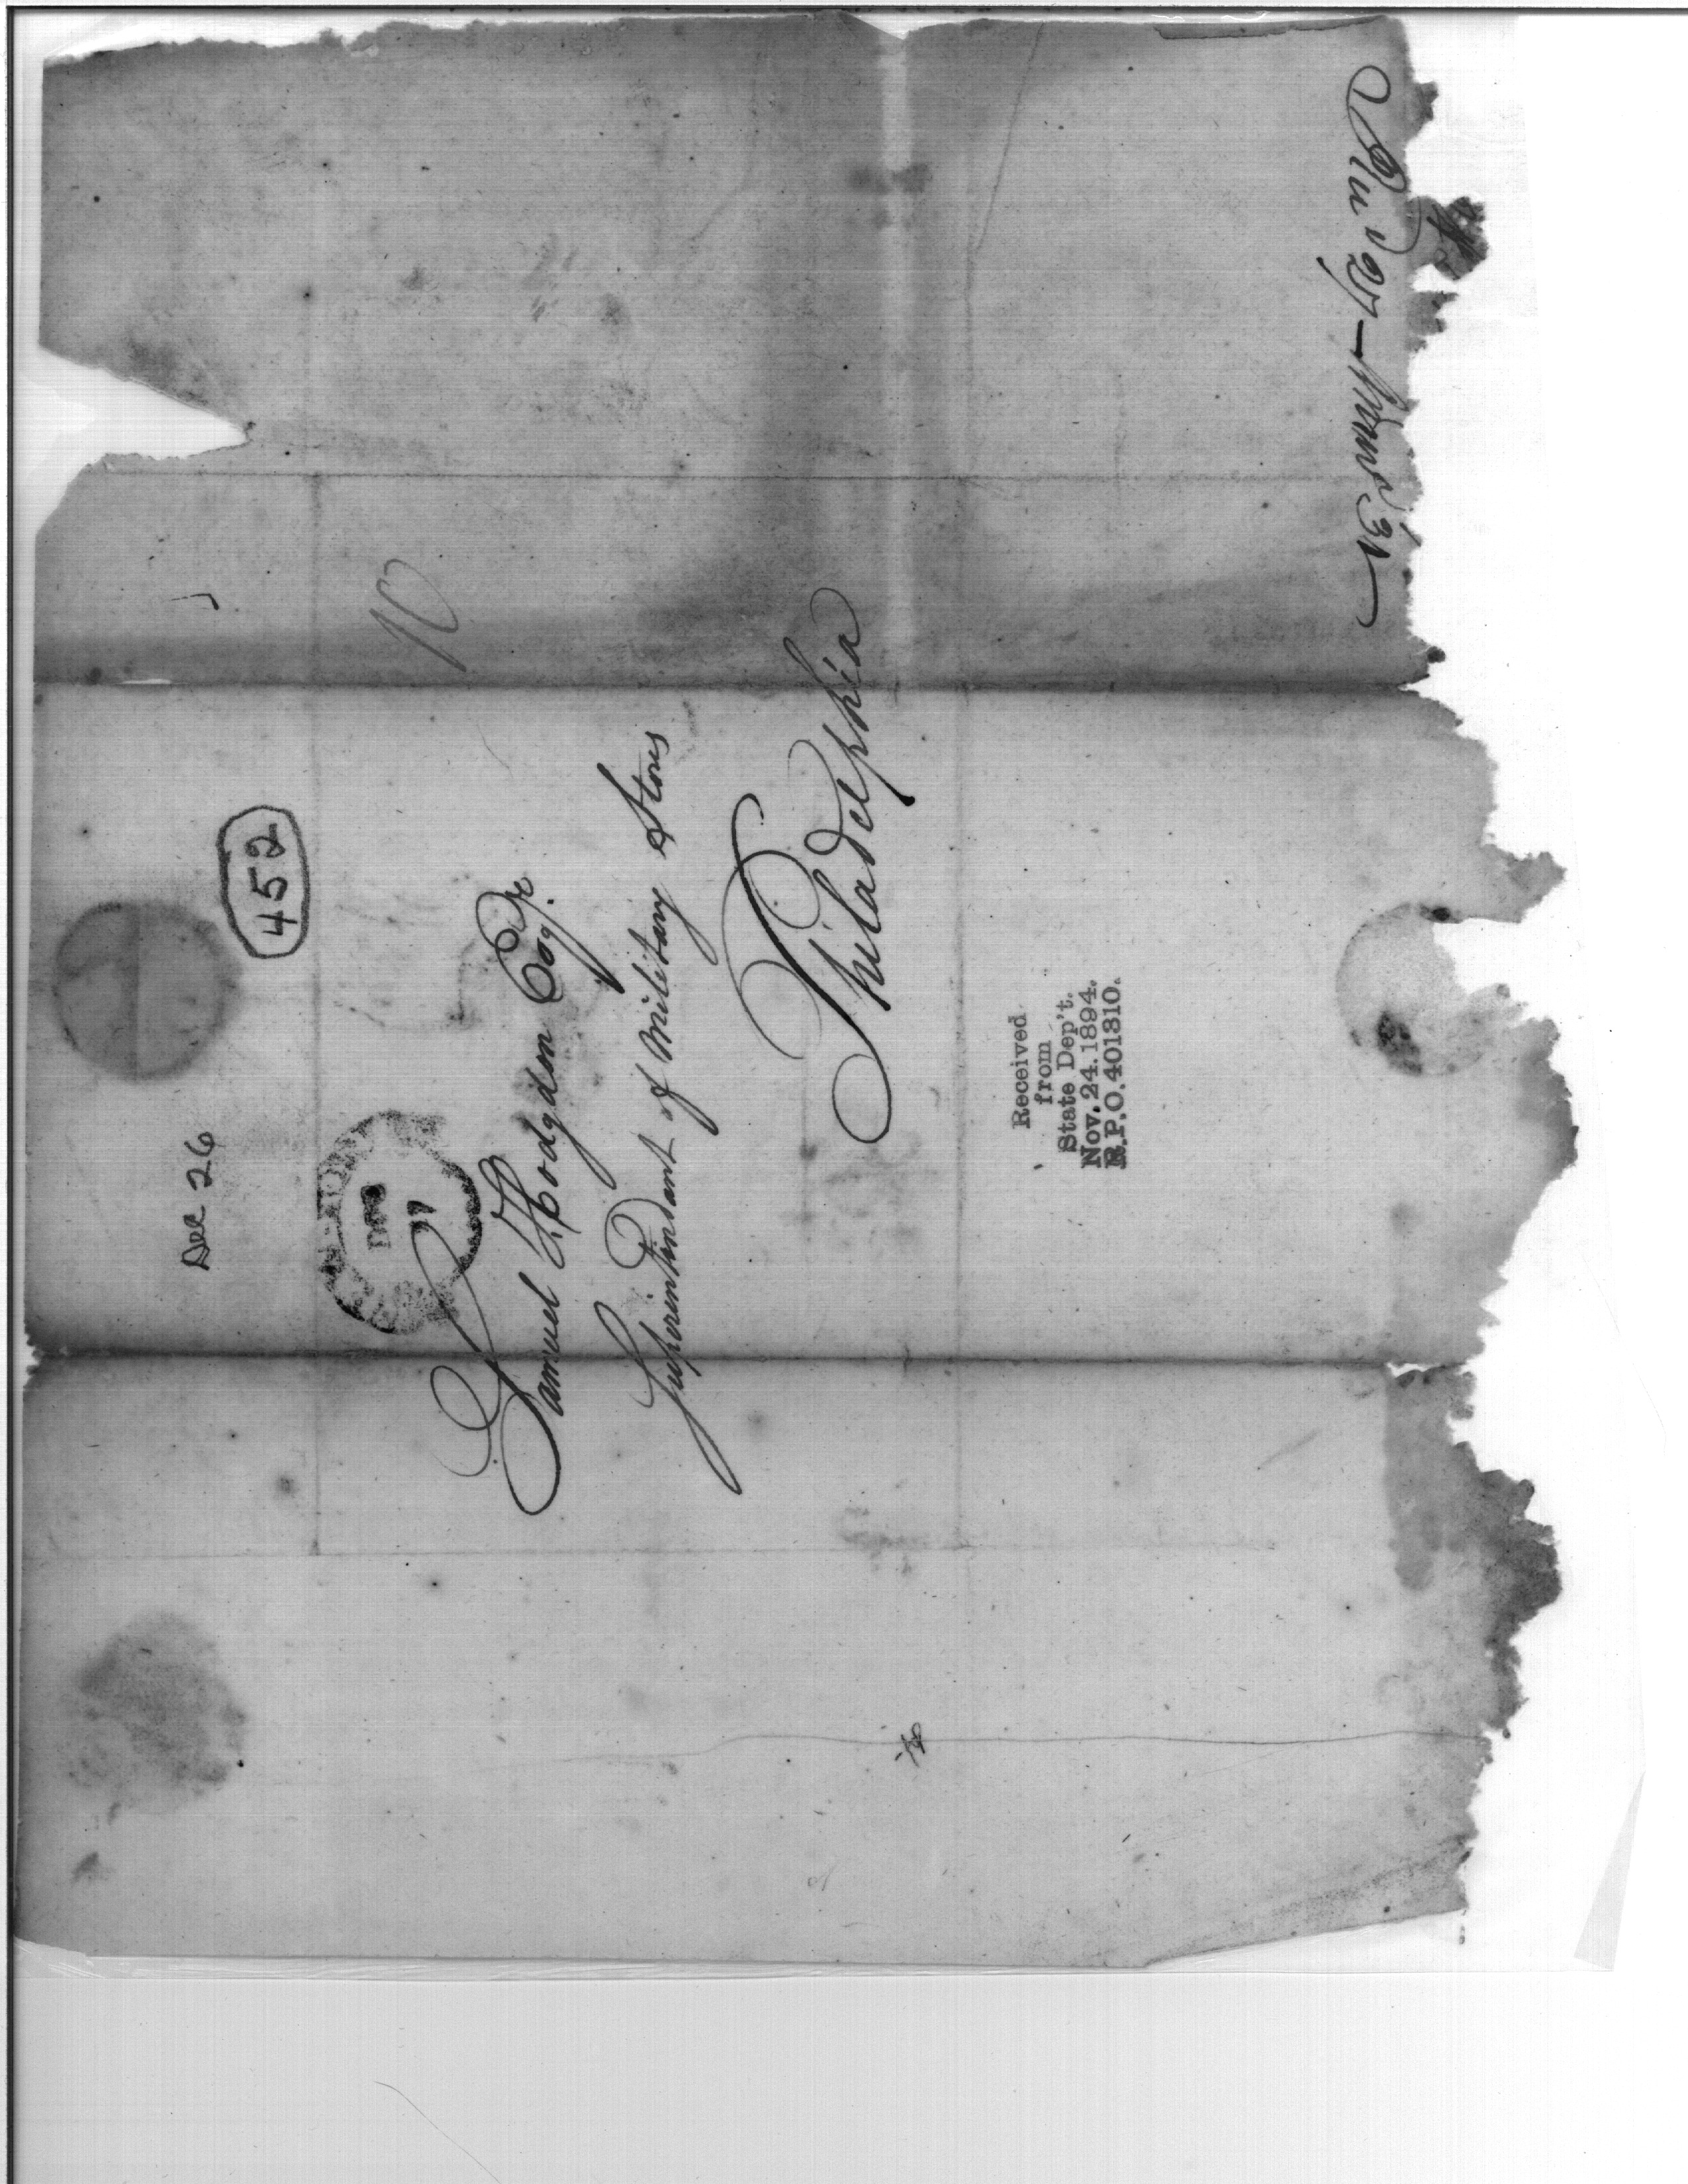 Dec 26
452
10
DEC
27
Samuel Hodgdon Esqr.
Superintendant of Military Stores
Philadelphia
Received
from
State Dep't.
Nov. 24. 1894.
R.P.O. 401310.